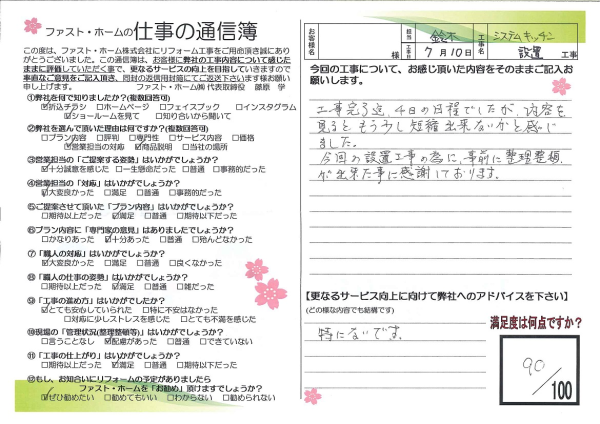 ファスト・ホームの仕事の通信簿
この度は、ファスト・ホーム株式会社にリフォーム工事をご用命頂き誠にあり
がとうございました。この通信簿は、お客様に弊社の工事内容について感じた
ままに評価していただく事で、更なるサービスの向上を目指していきますので
率直なご意見をご記入頂き、同封の返信用封筒にてご返送下さいます様お願い
申し上げます。 ファスト・ホーム㈱ 代表取締役 藤原 学
①弊社を何で知りましたか?(複数回答可)
☑折込チラシ □ホームページ □フェイスブック □インスタグラム
☑ショールームを見て □知り合いから聞いて
②弊社を選んで頂いた理由は何ですか?(複数回答可)
□プラン内容 □評判 □専門性 □サービス内容 □価格
☑営業担当の対応 ☑商品説明 □当社の場所
③営業担当の「ご提案する姿勢」はいかがでしょうか?
☑十分誠意を感じた □一生懸命だった □普通 □事務的だった
④営業担当の「対応」はいかがでしょうか?
☑大変良かった □満足 □普通 □事務的だった
⑤ご提案させて頂いた「プラン内容」はいかがでしょうか?
□期待以上だった ☑満足 □普通 □期待以下だった
⑥プラン内容に「専門家の意見」はありましたでしょうか?
□かなりあった ☑十分あった □普通 □殆んどなかった
⑦「職人の対応」はいかがでしょうか?
☑大変良かった □満足 □普通 □良くなかった
⑧「職人の仕事の姿勢」はいかがでしょうか?
□期待以上だった ☑満足 □普通 □雑だった
⑨「工事の進め方」はいかがでしたか?
☑とても安心していられた □特に不安はなかった
□対応に少しストレスを感じた □とても不満を感じた
⑩現場の「管理状況(整理整頓等)」はいかがでしょうか?
□言うことなし ☑配慮があった □普通 □できていない
⑪「工事の仕上がり」はいかがでしょうか?
□期待以上だった ☑満足 □普通 □期待以下だった
⑫もし、お知合いにリフォームの予定がありましたら
ファスト・ホームを「お勧め」頂けますでしょうか?
☑ぜひ勧めたい □勧めてもいい □わからない □勧められない
お客様名 様
担当 鈴木
工事日 7月10日
工事名 システムキッチン 設置 工事
今回の工事について、お感じ頂いた内容をそのままご記入お
願いします。
工事完了迄、4日の日程でしたが、内容を
見るともう少し短縮出来ないかと感じ
ました。
今回の設置工事の為に、事前に整理整頓
が出来た事に感謝しております。
【更なるサービス向上に向けて弊社へのアドバイスを下さい】
(どの様な内容でも結構です)
特にないです。
満足度は何点ですか?
90/100